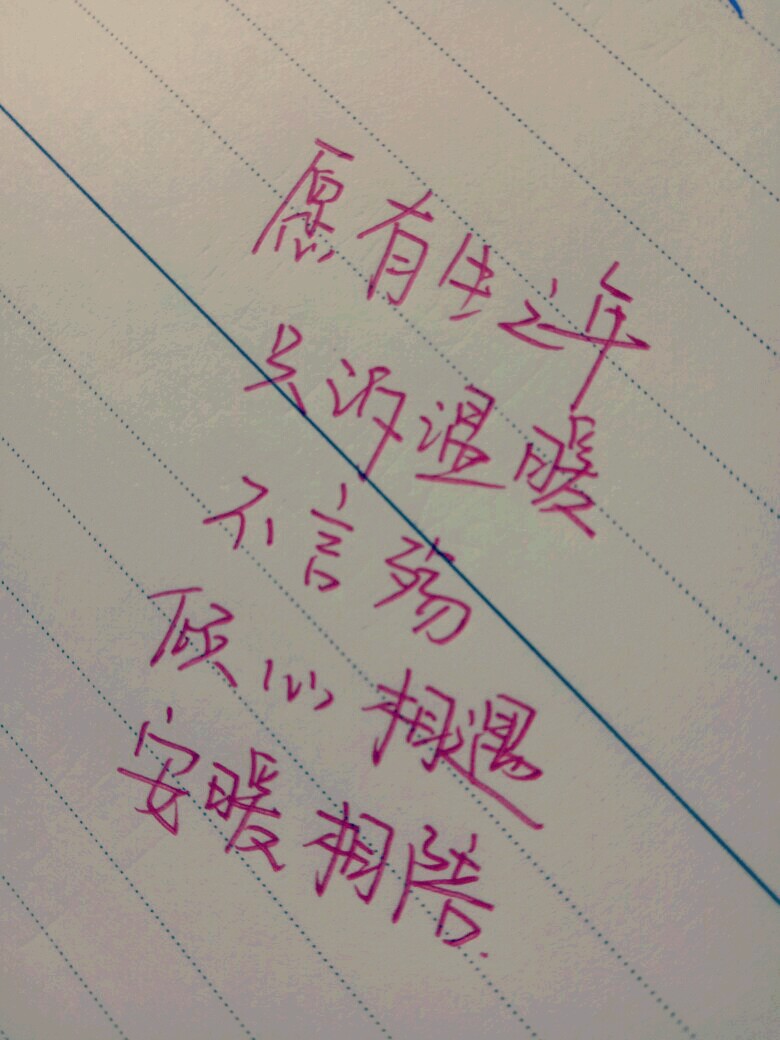 愿有生之年
只诉温暖
不言殇
倾心相遇
安暖相陪.